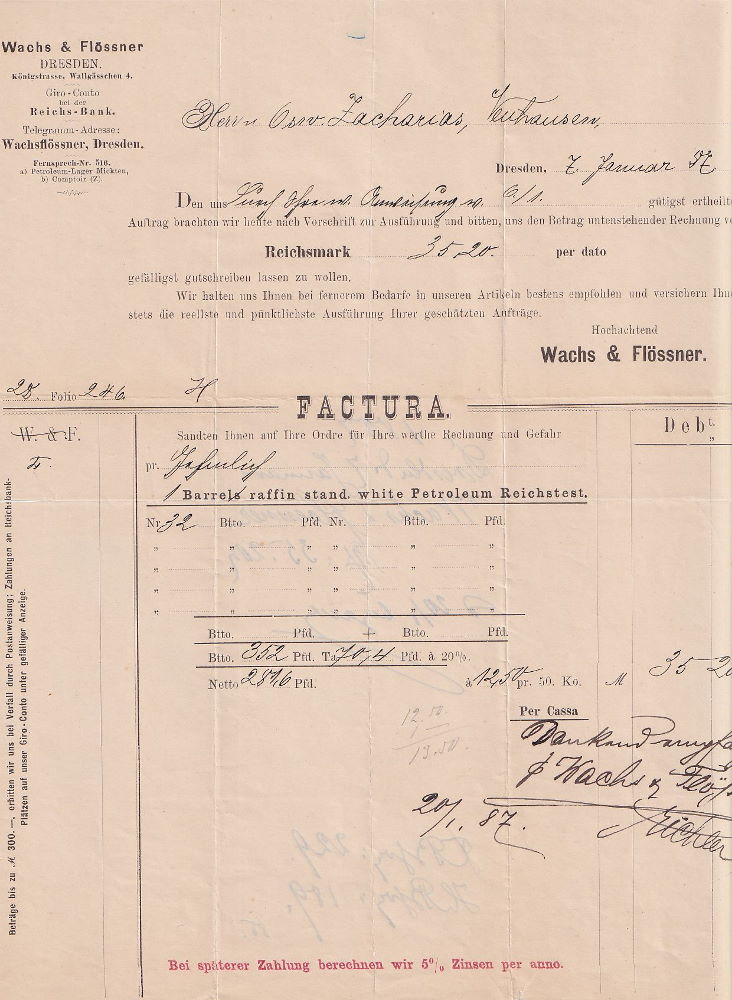 Wachs & Flössner
DRESDEN.
Königstrasse, Wallgässchen 4.
Giro-Conto
bei der
Reichs-Bank.
Telegramm-Adresse:
Wachsflössner, Dresden.
Fernsprech-Nr. 516.
a) Petroleum-Lager Mickten,
b) Comptoir (Z).
Herrn Osw. Zacharias, Neuhausen.
Dresden, 7 Januar 87
Den uns durch Ihre w. Anweisung v. 6/1. gütigst ertheilte
Auftrag brachten wir heute nach Vorschrift zur Ausführung und bitten, uns den Betrag untenstehender Rechnung
Reichsmark 35.20. per dato
gefälligst gutschreiben lassen zu wollen.
Wir halten uns Ihnen bei fernerem Bedarfe in unseren Artikeln bestens empfohlen und versichern
stets die reellste und pünktlichste Ausführung Ihrer geschätzten Aufträge.
Hochachtend
Wachs & Flössner.
28. Folio 246.
FACTURA.
W. & F.
Sandten Ihnen auf Ihre Ordre für Ihre werthe Rechnung und Gefahr
Debt.
pr.
1 Barrels raffin stand. white Petroleum Reichstest.
Nr. 32 Btto. Pfd. Nr. Btto. Pfd.
" " " " " "
" " " " " "
" " " " " "
" " " " " "
Btto. Pfd. + Btto. Pfd.
Btto. 352 Pfd. Ta 70,4 Pfd. à 20%.
Netto 281,6 Pfd. à 12,50 pr. 50. Ko. M 35 20
12.50.
1
13.50.
Per Cassa
Dankend
p Wachs &
20/1. 87.
Beträge bis zu M 300.—, erbitten wir uns bei Verfall durch Postanweisung; Zahlungen an Reichsbank-
Plätzen auf unser Giro-Conto unter gefälliger Anzeige.
Bei späterer Zahlung berechnen wir 5% Zinsen per anno.